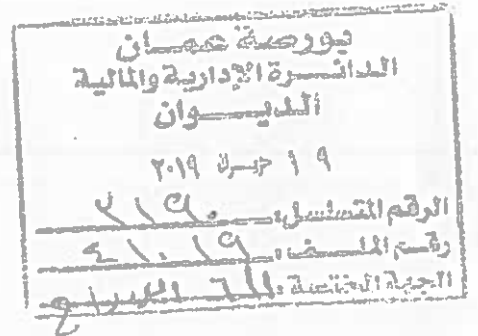 بورصة عمان
الدائرة الإدارية والمالية
الديوان
١٩ حزيران ٢٠١٩
الرقم المتسلسل:
رقم الملف: ٤١٠١٩
الجهة المختصة: